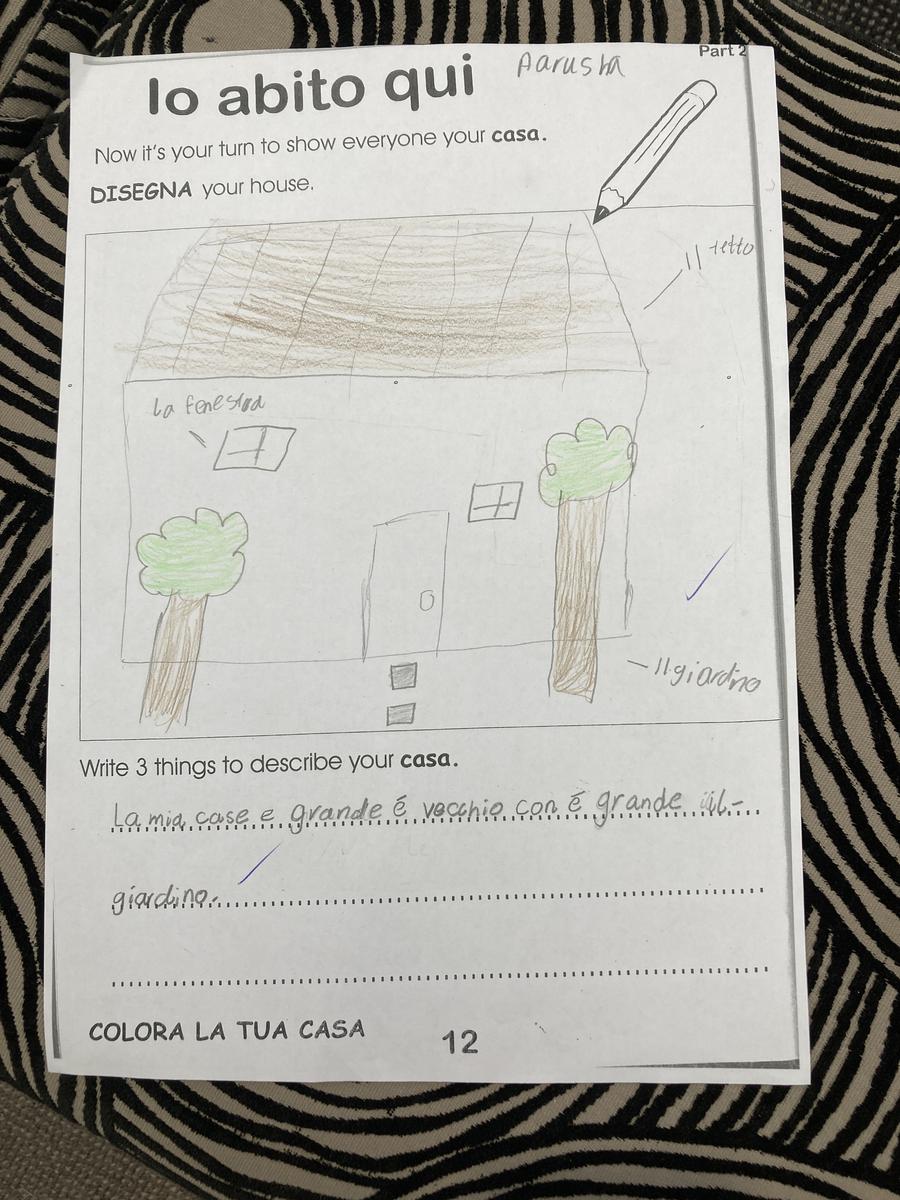 Part 2
Io abito qui Aarusha
Now it's your turn to show everyone your casa.
DISEGNA your house.
Il tetto
la fenestra
Il giardino
Write 3 things to describe your casa.
La mia case e grande é vecchio con é grande il
giardino.
COLORA LA TUA CASA
12